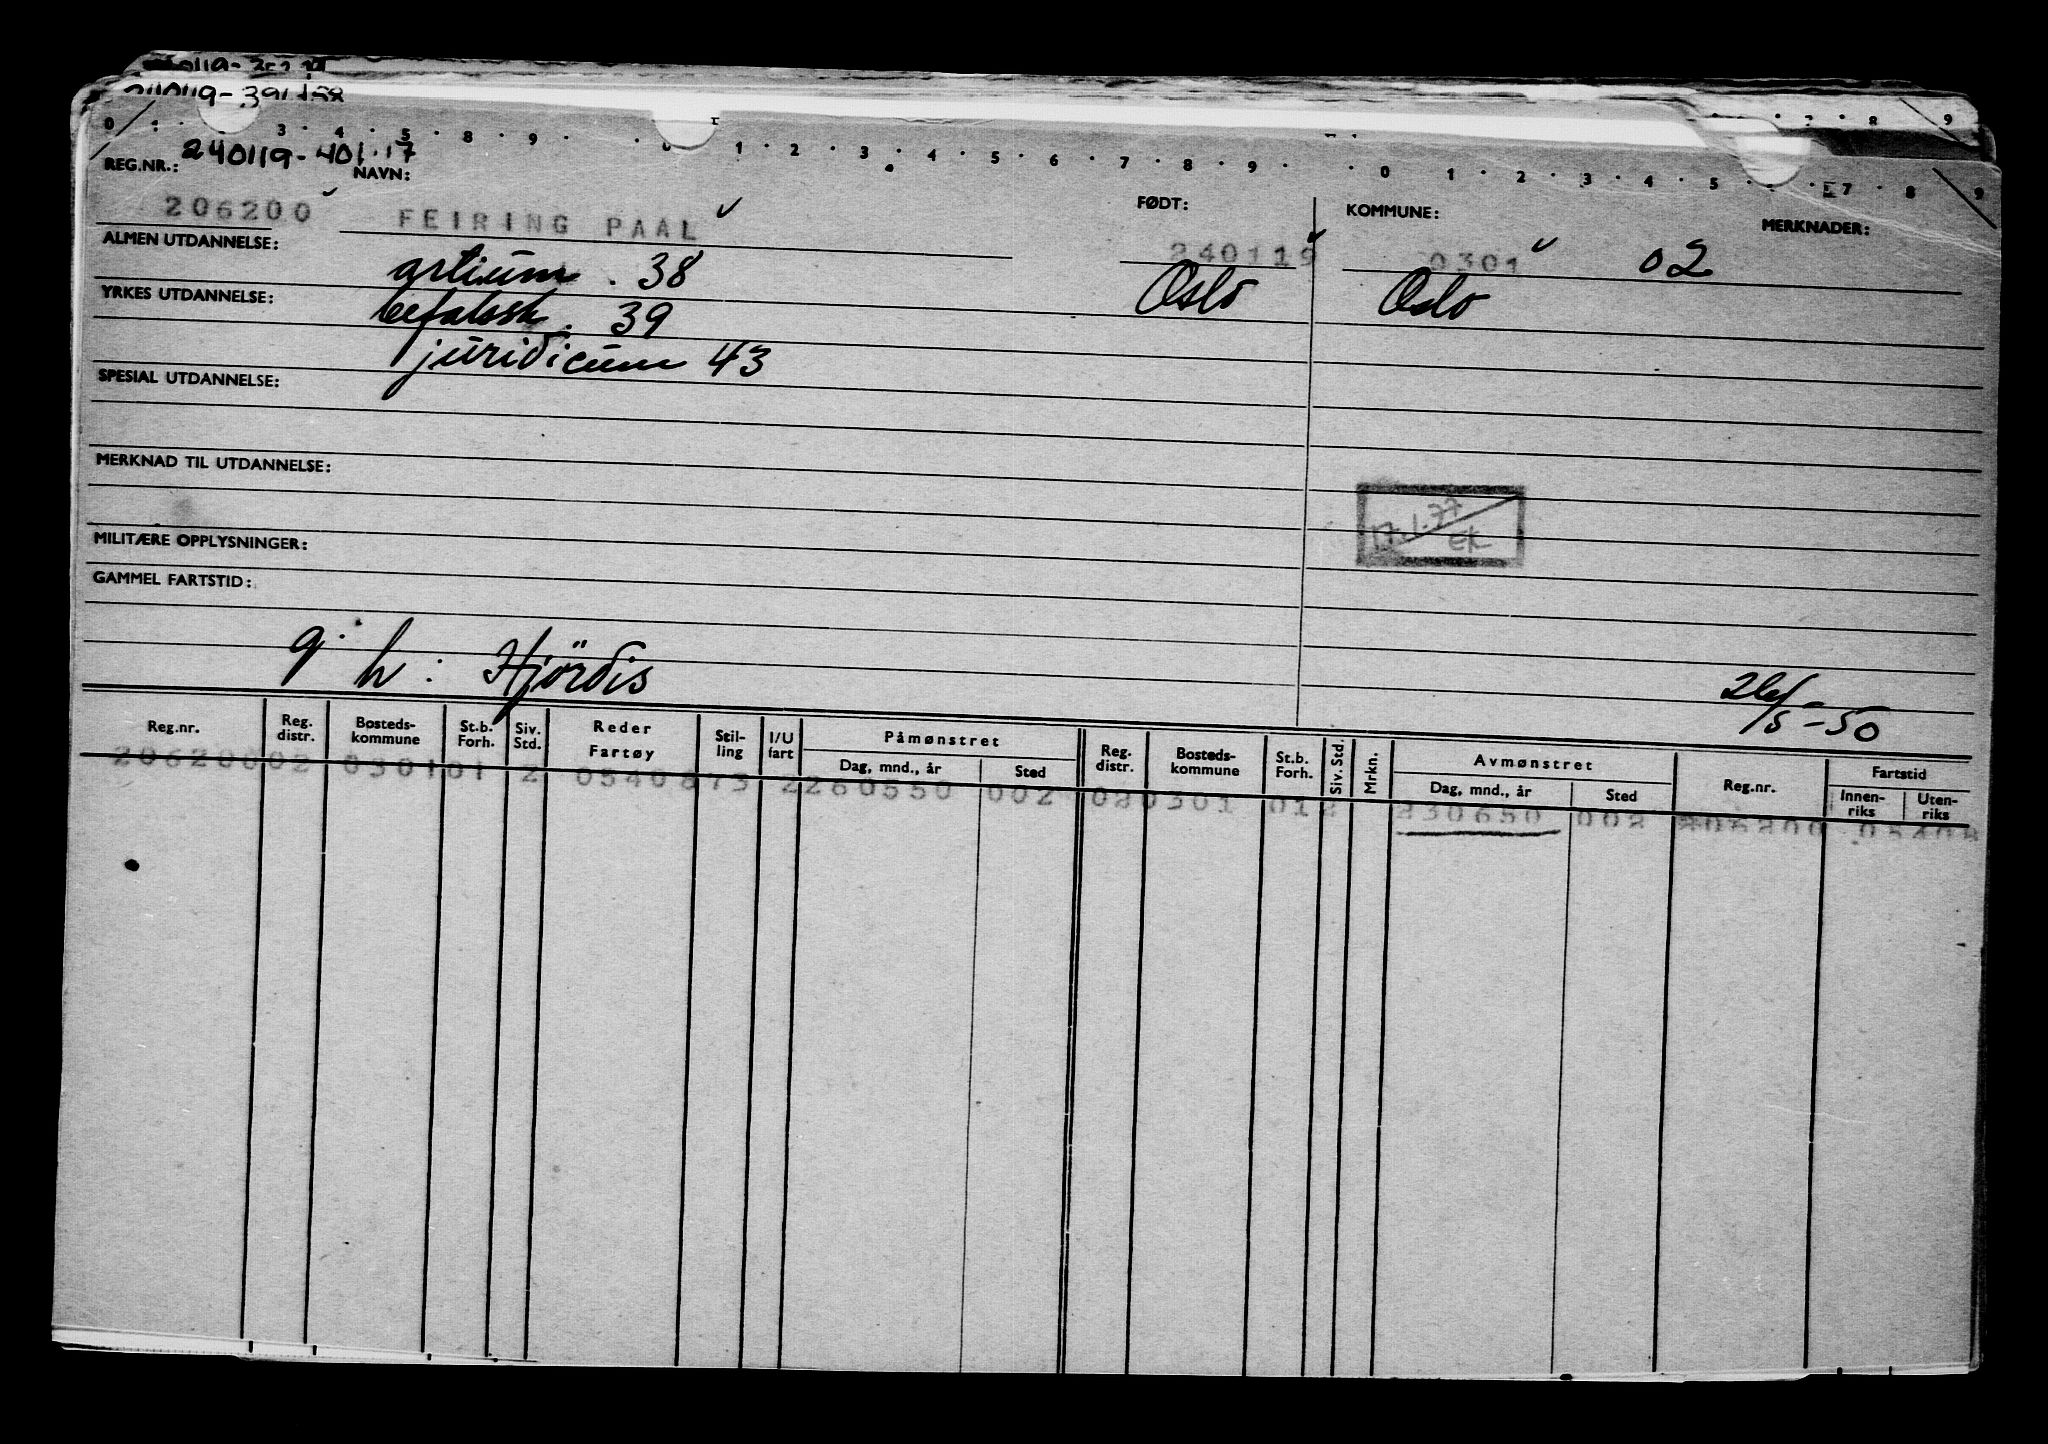 240119-391158
0 1 · 3 · 4 · 5 · 8 · 9 · 0 · 1 · 2 · 3 · 4 · 5 · 6 · 7 · 8 · 9 · 0 · 1 · 2 · 3 · 4 · 5 · 7 · 8 9
REG.NR.: 240119-401.17 NAVN: FØDT: KOMMUNE: MERKNADER:
206200 FEIRING PAAL 240119 0301 02
ALMEN UTDANNELSE: artium . 38 Oslo Oslo
YRKES UTDANNELSE: befalssk. 39
juridicum 43
SPESIAL UTDANNELSE:
MERKNAD TIL UTDANNELSE:
17.1.77
EK
MILITÆRE OPPLYSNINGER:
GAMMEL FARTSTID:
g. h: Hjördis 26/5-50
Reg.nr. Reg. distr. Bosteds- kommune St.b. Forh. Siv. Std. Reder Fartøy Stil- ling I/U fart Påmønstret Dag, mnd., år Sted Reg. distr. Bosteds- kommune St.b. Forh. Siv. Std. Mrkn. Avmønstret Dag, mnd., år Sted Reg.nr. Fartstid Innen- riks Uten- riks
20620002 030101 2 0540873 2260550 002 020301 012 230650 002 206200 05408